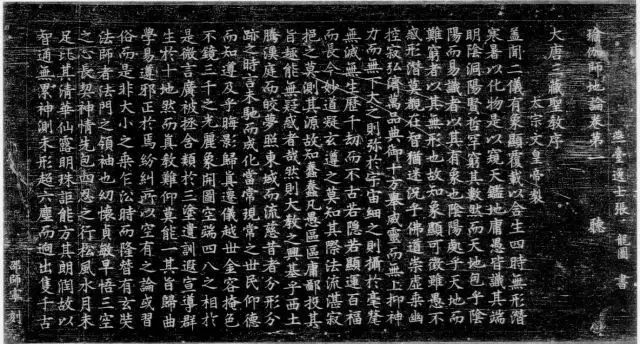 燕臺逸士張龍圖書
瑜伽師地論卷第一 聽
大唐三藏聖教序
太宗文皇帝製
蓋聞二儀有象顯覆載以含生四時無形潛
寒暑以化物是以窺天鑑地庸愚皆識其端
明陰洞陽賢哲罕窮其數然而天地包乎陰
陽而易識者以其有象也陰陽處乎天地而
難窮者以其無形也故知象顯可徵雖愚不
惑形潛莫覩在智猶迷況乎佛道崇虛乘幽
控寂弘濟萬品典御十方舉威靈而無上抑神
力而無下大之則彌於宇宙細之則攝於毫釐
無滅無生歷千劫而不古若隱若顯運百福
而長今妙道凝玄遵之莫知其際法流湛寂
挹之莫測其源故知蠢蠢凡愚區區庸鄙投其
旨趣能無疑惑者哉然則大教之興基乎西土
騰漢庭而皎夢照東域而流慈昔者分形分
跡之時言未馳而成化當常現常之世民仰德
而知遵及乎晦影歸真遷儀越世金容掩色
不鏡三千之光麗象開圖空端四八之相於
是微言廣被拯含類於三塗遺訓遐宣導群
生於十地然而真教難仰莫能一其旨歸曲
學易遵邪正於焉紛糾所以空有之論或習
俗而是非大小之乘乍沿時而隆替有玄奘
法師者法門之領袖也幼懷貞敏早悟三空
之心長契神情先包四忍之行松風水月未
足比其清華仙露明珠詎能方其朗潤故以
智通無累神測未形超六塵而迥出隻千古
邵師奉刻